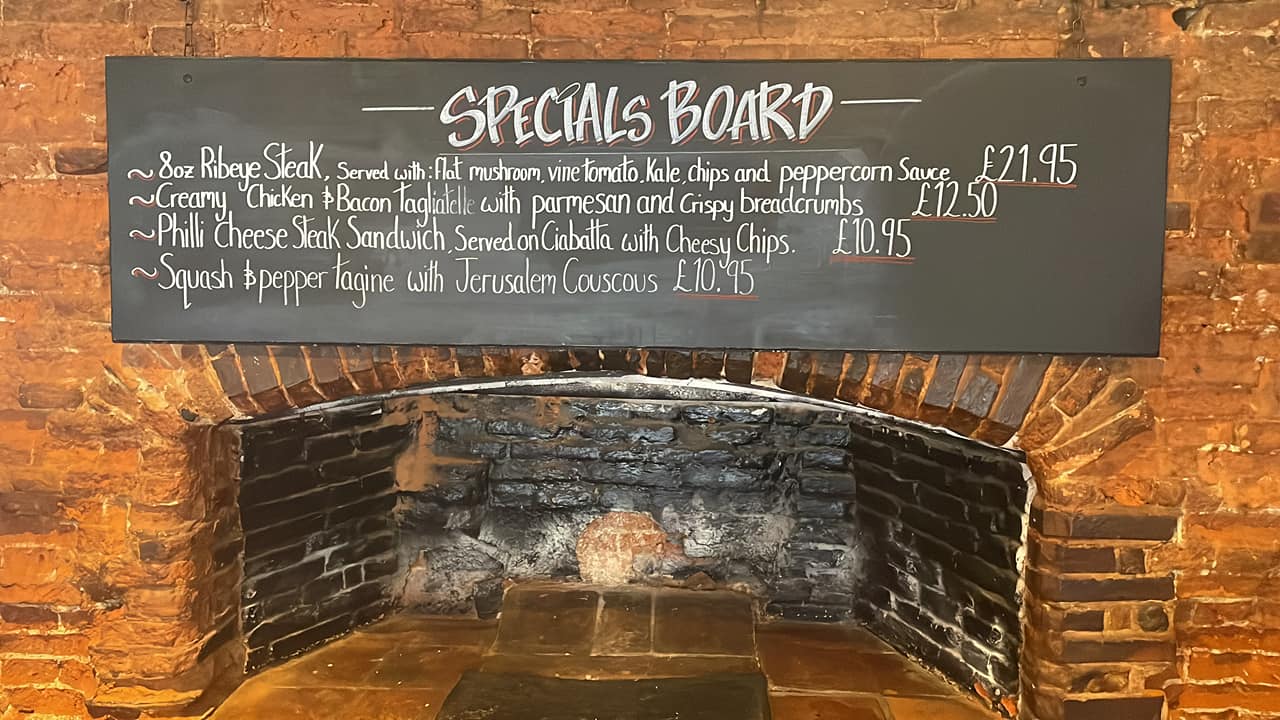 SPECIALS BOARD
~ 8oz Ribeye Steak, Served with: flat mushroom, vine tomato, Kale, chips and peppercorn Sauce £21.95
~ Creamy Chicken & Bacon tagliatelle with parmesan and Crispy breadcrumbs £12.50
~ Philli Cheese Steak Sandwich, Served on Ciabatta with Cheesy Chips. £10.95
~ Squash & pepper tagine with Jerusalem Couscous £10.95